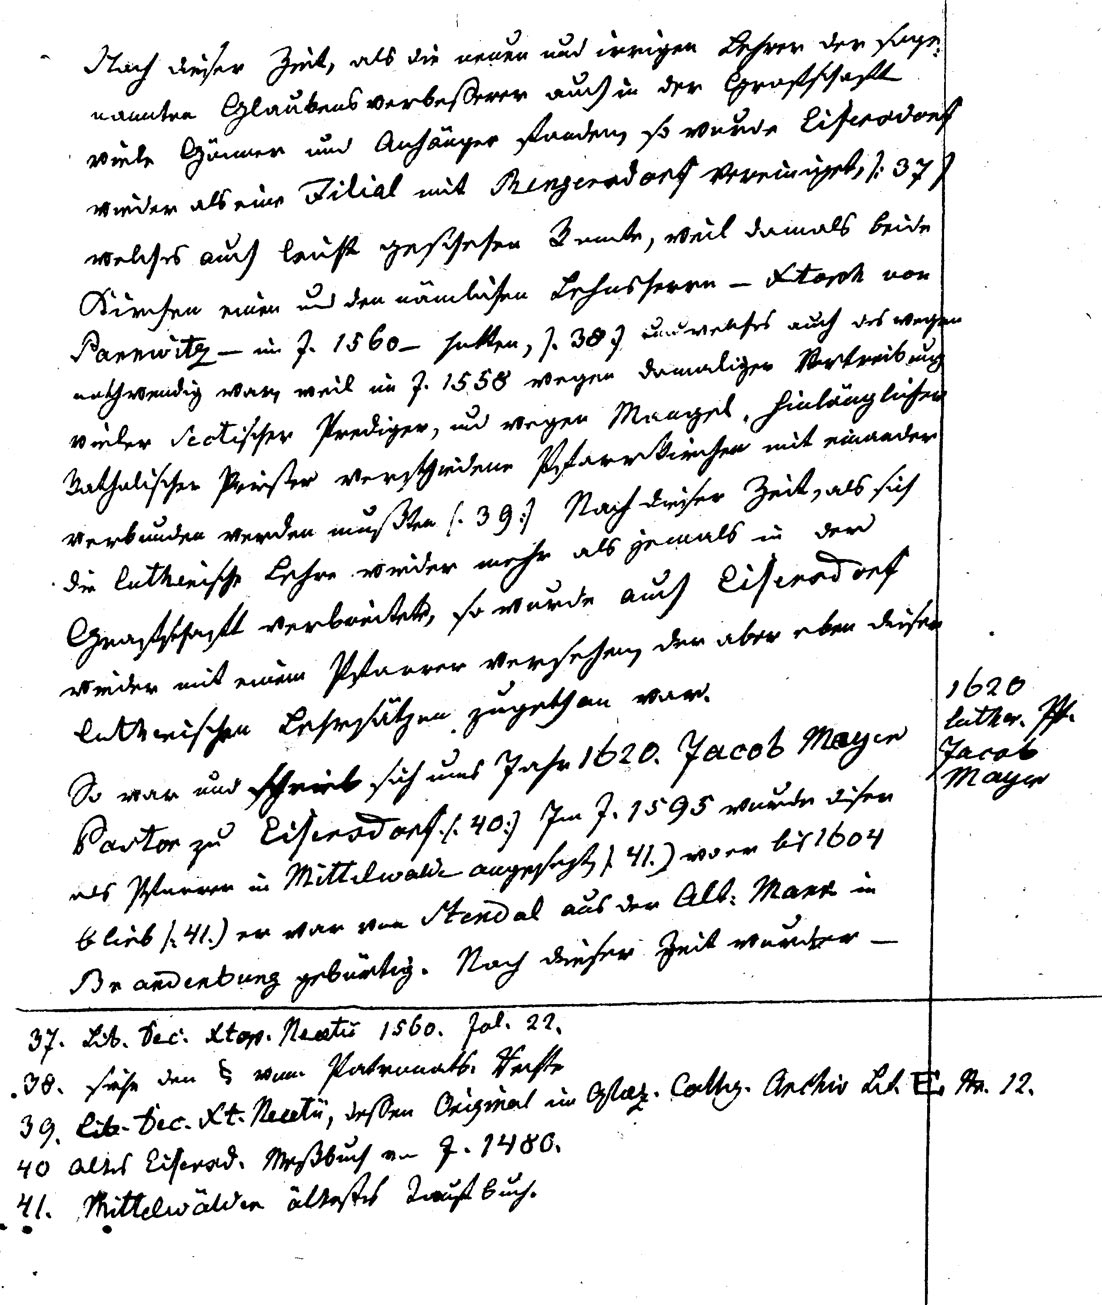 Nach dieser Zeit, als die neuen und irrigen Lehrer der soge-
nannten Glaubensverbeßerer auch in der Grafschaft
viele Gönner und Anhänger fanden, so wurde Eisersdorf
wieder als eine Filial mit Rengersdorf vereiniget, /: 37 /
welches auch leicht geschehen konnte, weil damals beide
Kirchen einen und den nämlichen Lehnsherrn – Xtoph von
Pannwitz – im J. 1560 – hatten, /: 38 :/ und welches auch deswegen
nothwendig war, weil im J. 1558 wegen damaliger Vertreibung
vieler Sectischer Prediger, und wegen Mangel hinlänglicher
Katholischer Priester verschiedene Pfarrkirchen mit einander
verbunden werden mußten /: 39 :/ Nach dieser Zeit, als sich
die lutherische Lehre wieder mehr als jemals in der
Grafschaft verbreitete, so wurde auch Eisersdorf
wieder mit einem Pfarrer versehen, der aber eben diesen
lutherischen Lehrsätzen zugethan war.
So war und schrieb sich ums Jahr 1620. Jacob Mayer
Pastor zu Eisersdorf. /: 40 :/ Im J. 1595 wurde dieser
als Pfarrer in Mittelwalde angesetzt, /: 41.) wo er bis 1604
blieb /: 41.) er war von Stendal aus der Alt: Mark in
Brandenburg gebürtig. Nach dieser Zeit wurde –
1620
luther. Pf.
Jacob
Mayer
37. Lib. Dec. Xtop. Neaetii 1560. Fol. 22.
38. siehe den § vom Patronats-Rechte
39. Lib. Dec. Xt. Neaetii, dessen Original im Glaz. Archiv Lit. E. Nr. 12.
40 altes Eisersd. Meßbuch v. J. 1480.
41. Mittelwälder ältestes Taufbuch.